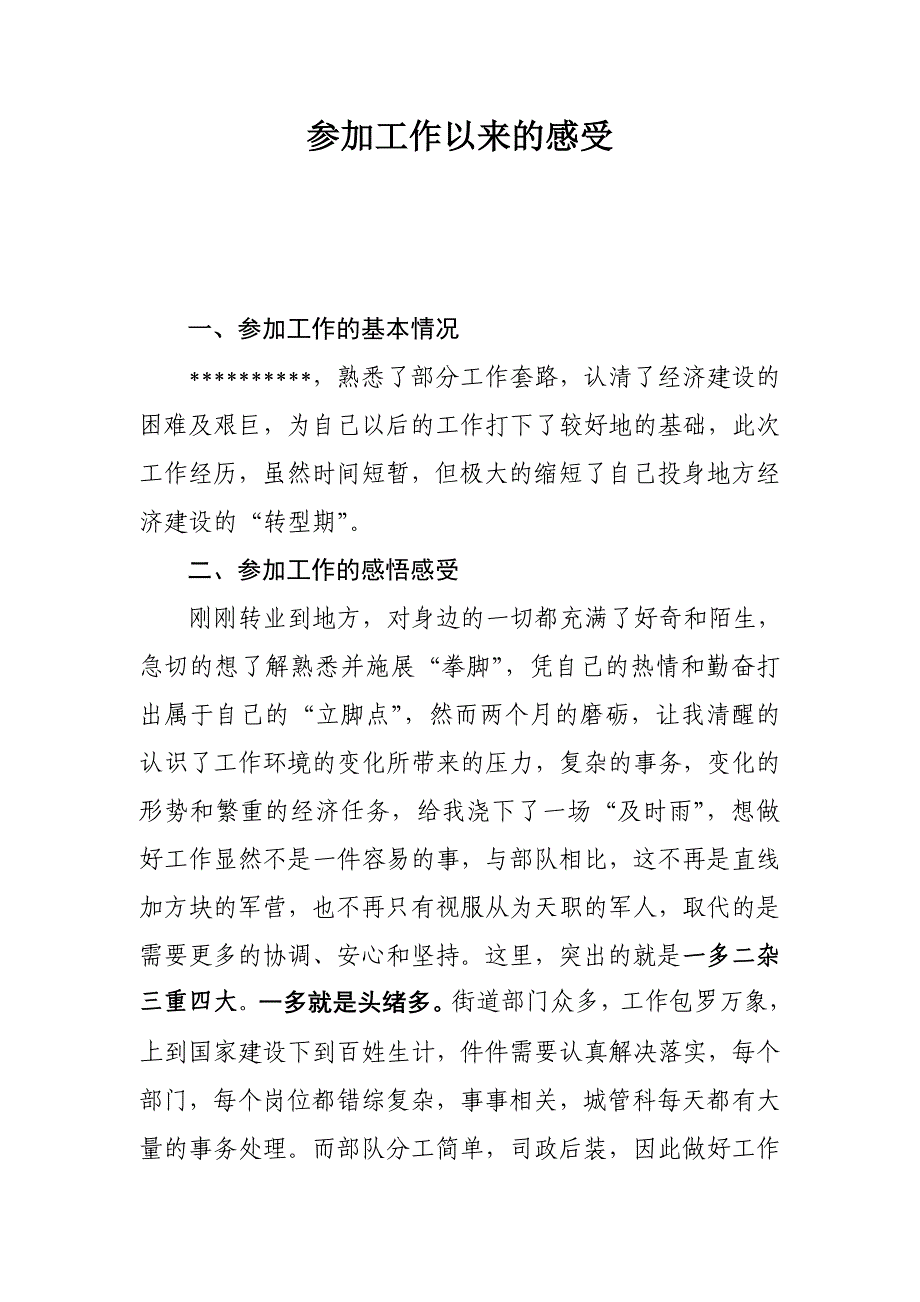 参加工作以来的感受
一、参加工作的基本情况
**********，熟悉了部分工作套路，认清了经济建设的
困难及艰巨，为自己以后的工作打下了较好地的基础，此次
工作经历，虽然时间短暂，但极大的缩短了自己投身地方经
济建设的“转型期”。
二、参加工作的感悟感受
刚刚转业到地方，对身边的一切都充满了好奇和陌生，
急切的想了解熟悉并施展“拳脚”，凭自己的热情和勤奋打
出属于自己的“立脚点”，然而两个月的磨砺，让我清醒的
认识了工作环境的变化所带来的压力，复杂的事务，变化的
形势和繁重的经济任务，给我浇下了一场“及时雨”，想做
好工作显然不是一件容易的事，与部队相比，这不再是直线
加方块的军营，也不再只有视服从为天职的军人，取代的是
需要更多的协调、安心和坚持。这里，突出的就是一多二杂
三重四大。一多就是头绪多。街道部门众多，工作包罗万象，
上到国家建设下到百姓生计，件件需要认真解决落实，每个
部门，每个岗位都错综复杂，事事相关，城管科每天都有大
量的事务处理。而部队分工简单，司政后装，因此做好工作